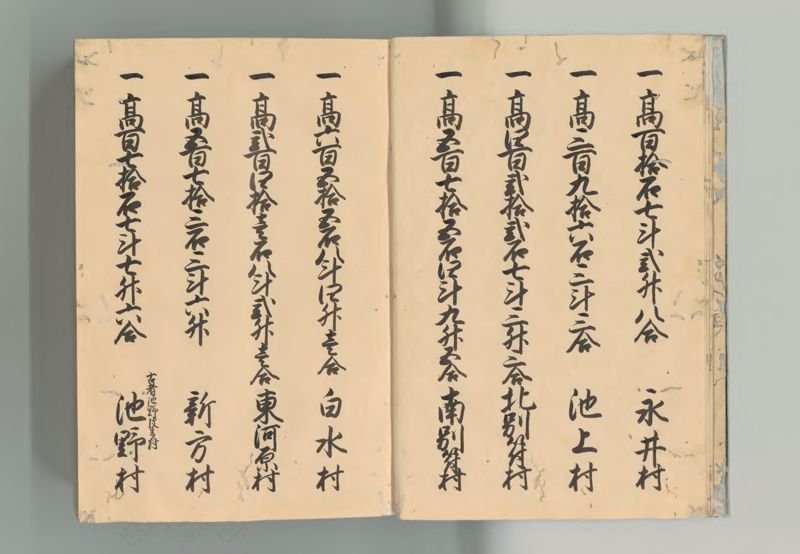 一 高百拾石七斗弐升八合 永井村
一 高三百九拾六石三斗三合 池上村
一 高四百弐拾弐石七斗三升二合 北別府村
一 高五百七拾五石四斗九升五合 南別府村
一 高六百五拾五石八斗四升壱合 白水村
一 高弐百四拾壱石八斗弐升壱合 東河原村
一 高五百七拾三石三斗六升 新方村
古者池野
一 高百七拾石七斗七升六合 池野村